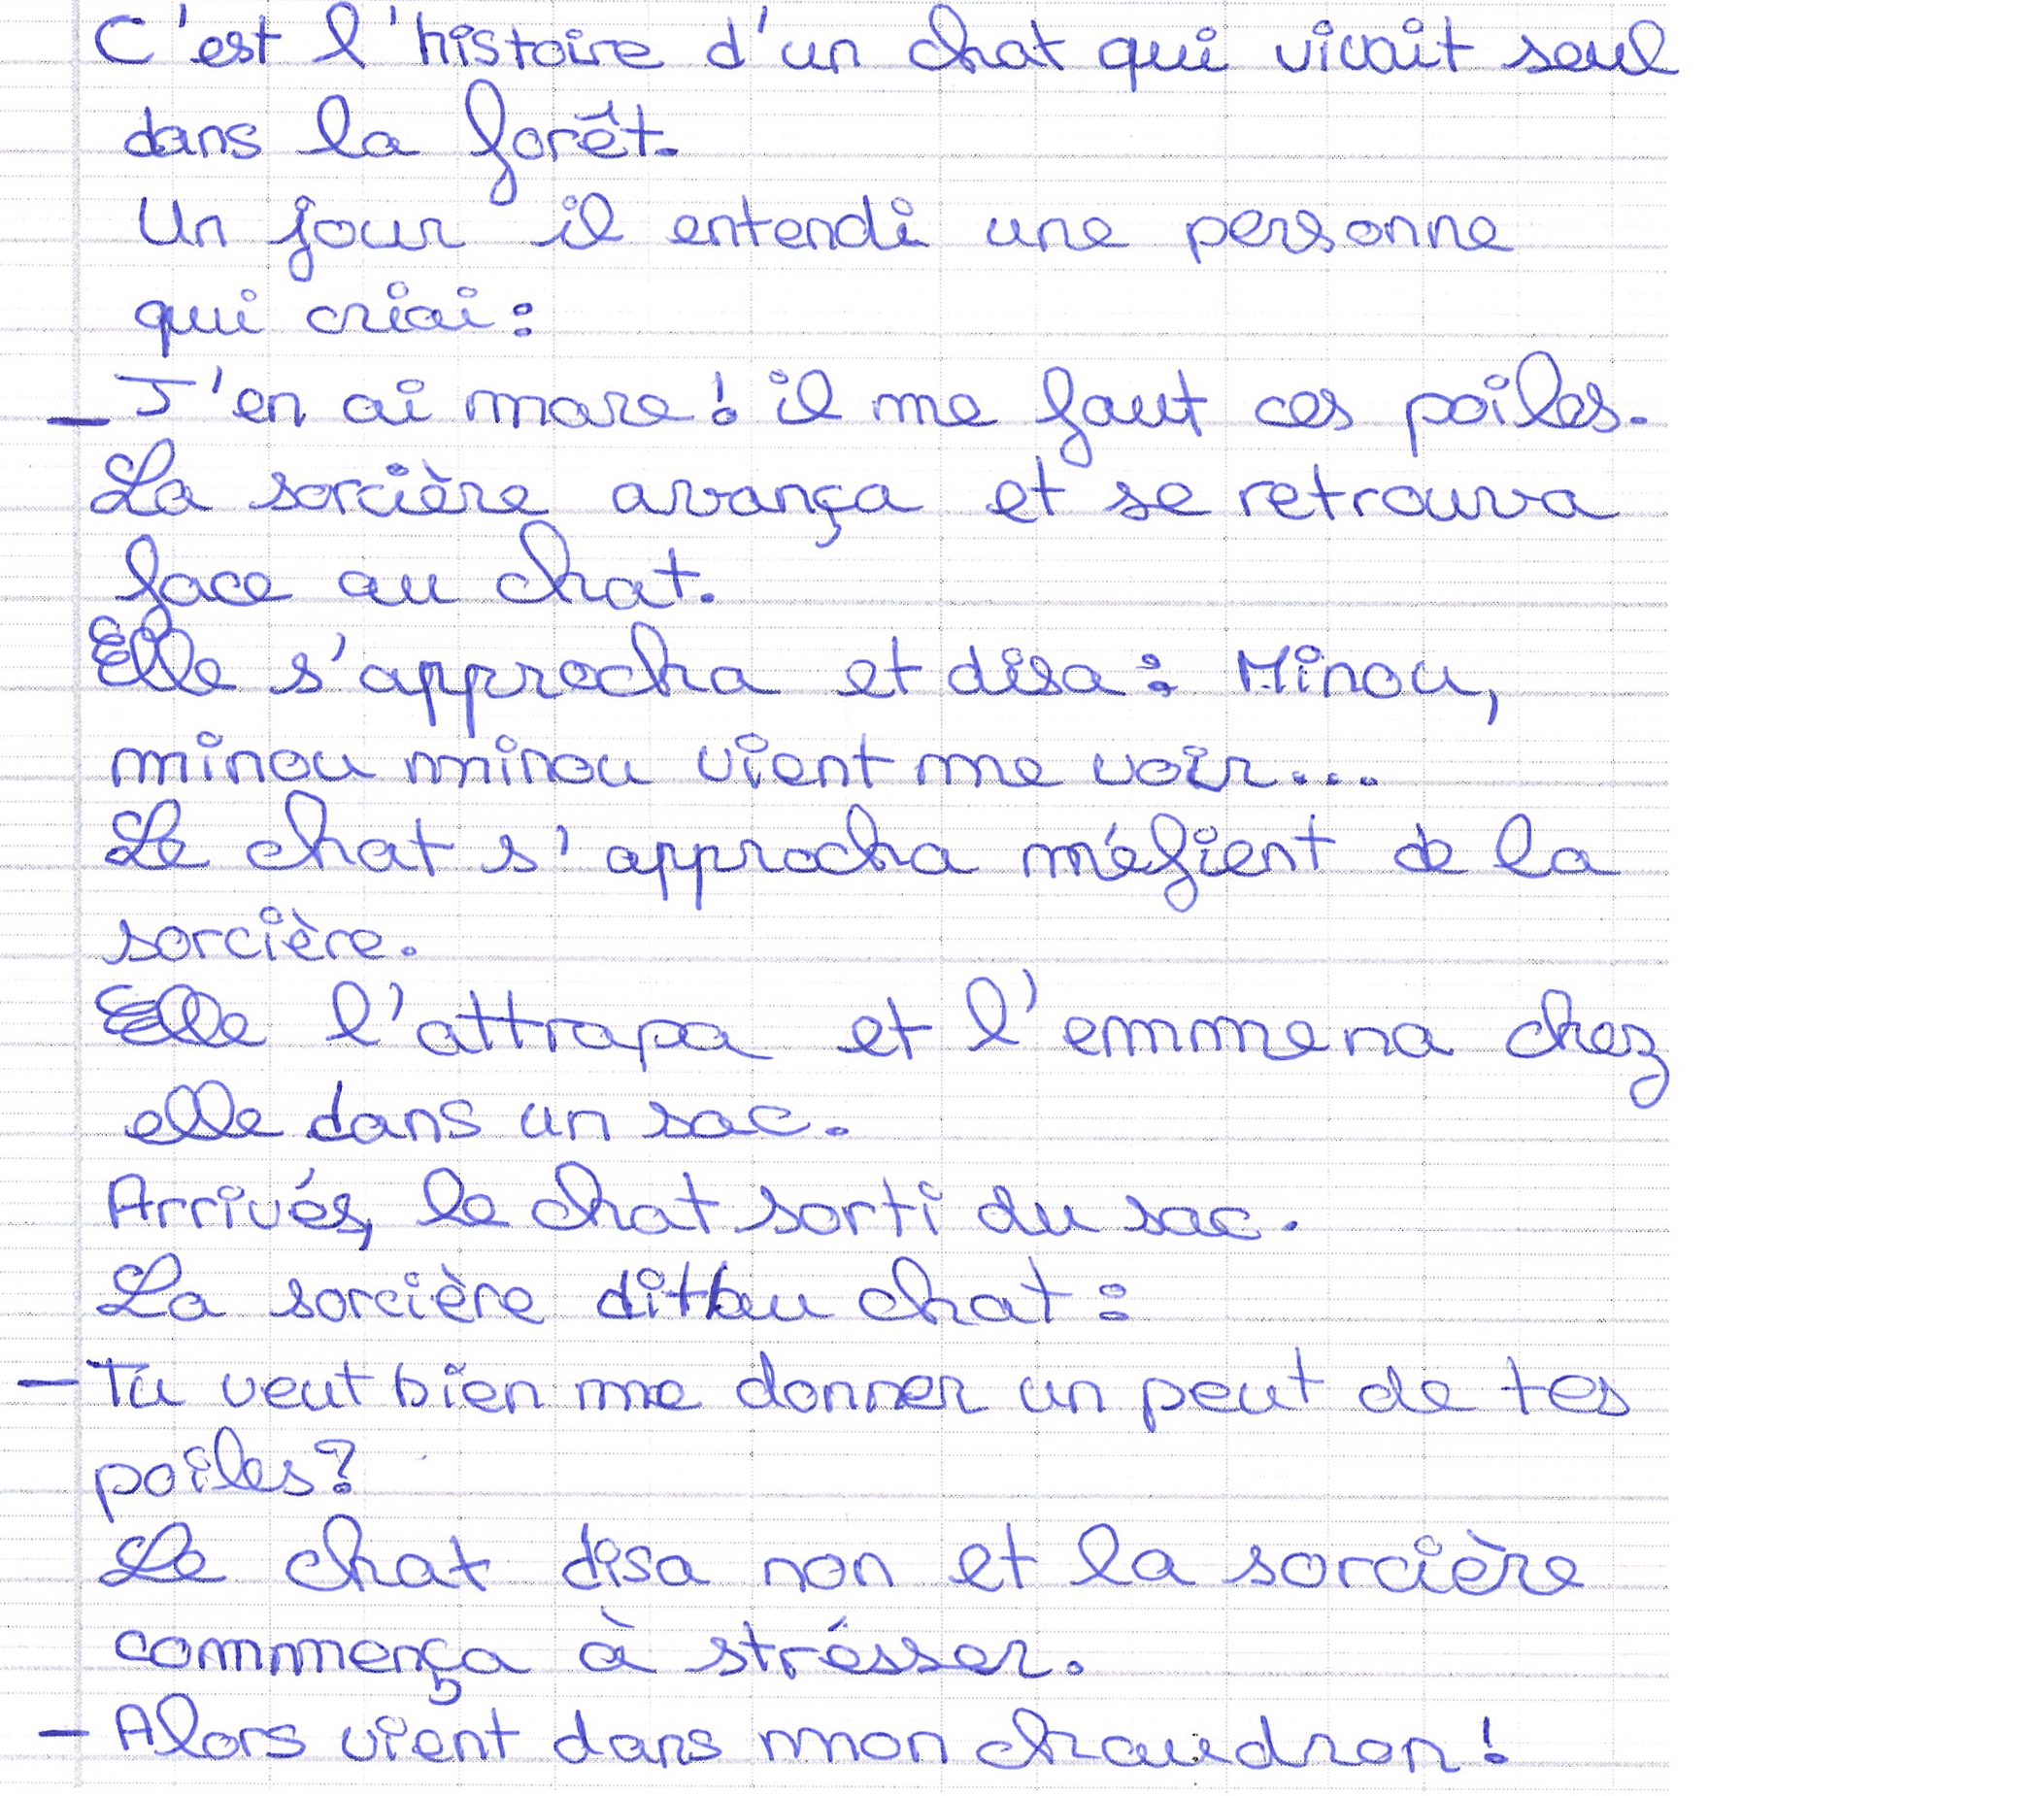 C'est l'histoire d'un chat qui vivait seul
dans la forêt.
Un jour il entendi une personne
qui criai :
- J'en ai mare ! il me faut ces poiles.
La sorcière avança et se retrouva
face au chat.
Elle s'approcha et disa : Minou,
minou minou vient me voir...
Le chat s'approcha méfient de la
sorcière.
Elle l'attrapa et l'emmena chez
elle dans un sac.
Arrivés, le chat sorti du sac.
La sorcière dit au chat :
- Tu veut bien me donner un peut de tes
poiles ?
Le chat disa non et la sorcière
commença à strésser.
- Alors vient dans mon chaudron !